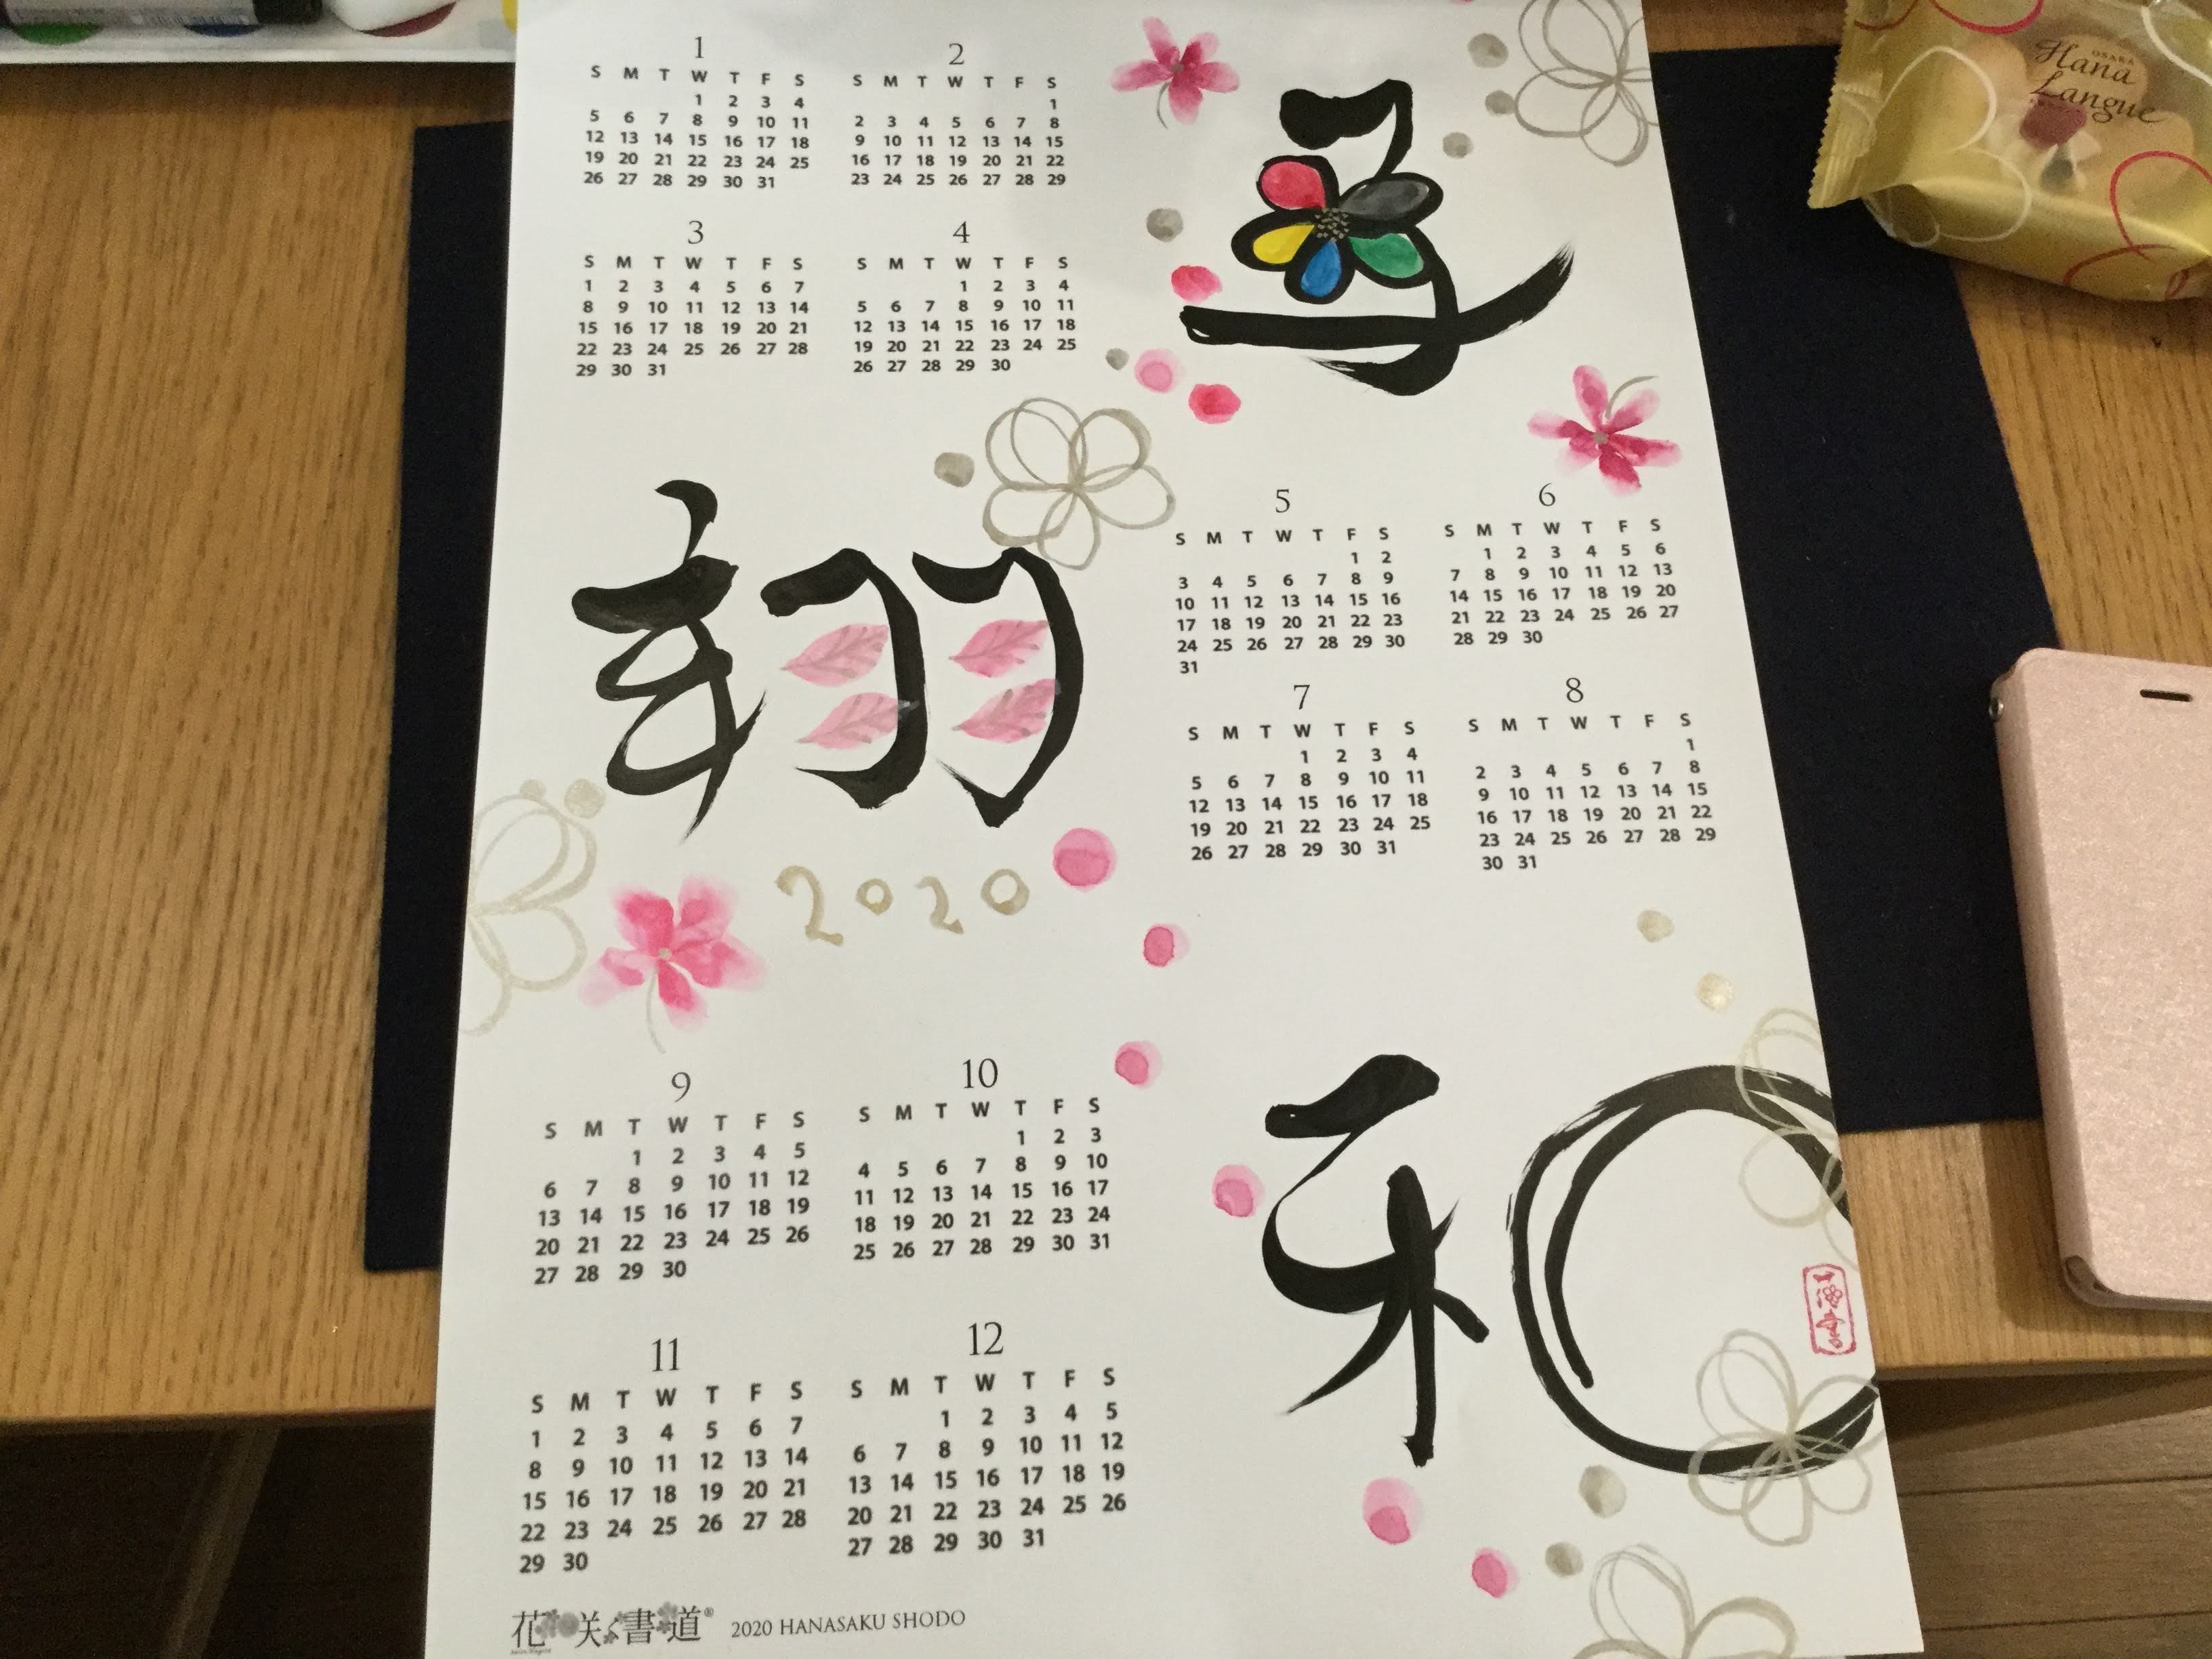 1
S M T W T F S
1 2 3 4
5 6 7 8 9 10 11
12 13 14 15 16 17 18
19 20 21 22 23 24 25
26 27 28 29 30 31
2
S M T W T F S
1
2 3 4 5 6 7 8
9 10 11 12 13 14 15
16 17 18 19 20 21 22
23 24 25 26 27 28 29
3
S M T W T F S
1 2 3 4 5 6 7
8 9 10 11 12 13 14
15 16 17 18 19 20 21
22 23 24 25 26 27 28
29 30 31
4
S M T W T F S
1 2 3 4
5 6 7 8 9 10 11
12 13 14 15 16 17 18
19 20 21 22 23 24 25
26 27 28 29 30
OSAKA
Hana
Langue
翔
2020
5
S M T W T F S
1 2
3 4 5 6 7 8 9
10 11 12 13 14 15 16
17 18 19 20 21 22 23
24 25 26 27 28 29 30
31
6
S M T W T F S
1 2 3 4 5 6
7 8 9 10 11 12 13
14 15 16 17 18 19 20
21 22 23 24 25 26 27
28 29 30
7
S M T W T F S
1 2 3 4
5 6 7 8 9 10 11
12 13 14 15 16 17 18
19 20 21 22 23 24 25
26 27 28 29 30 31
8
S M T W T F S
1
2 3 4 5 6 7 8
9 10 11 12 13 14 15
16 17 18 19 20 21 22
23 24 25 26 27 28 29
30 31
9
S M T W T F S
1 2 3 4 5
6 7 8 9 10 11 12
13 14 15 16 17 18 19
20 21 22 23 24 25 26
27 28 29 30
10
S M T W T F S
1 2 3
4 5 6 7 8 9 10
11 12 13 14 15 16 17
18 19 20 21 22 23 24
25 26 27 28 29 30 31
和
11
S M T W T F S
1 2 3 4 5 6 7
8 9 10 11 12 13 14
15 16 17 18 19 20 21
22 23 24 25 26 27 28
29 30
12
S M T W T F S
1 2 3 4 5
6 7 8 9 10 11 12
13 14 15 16 17 18 19
20 21 22 23 24 25 26
27 28 29 30 31
花咲く書道® 2020 HANASAKU SHODO